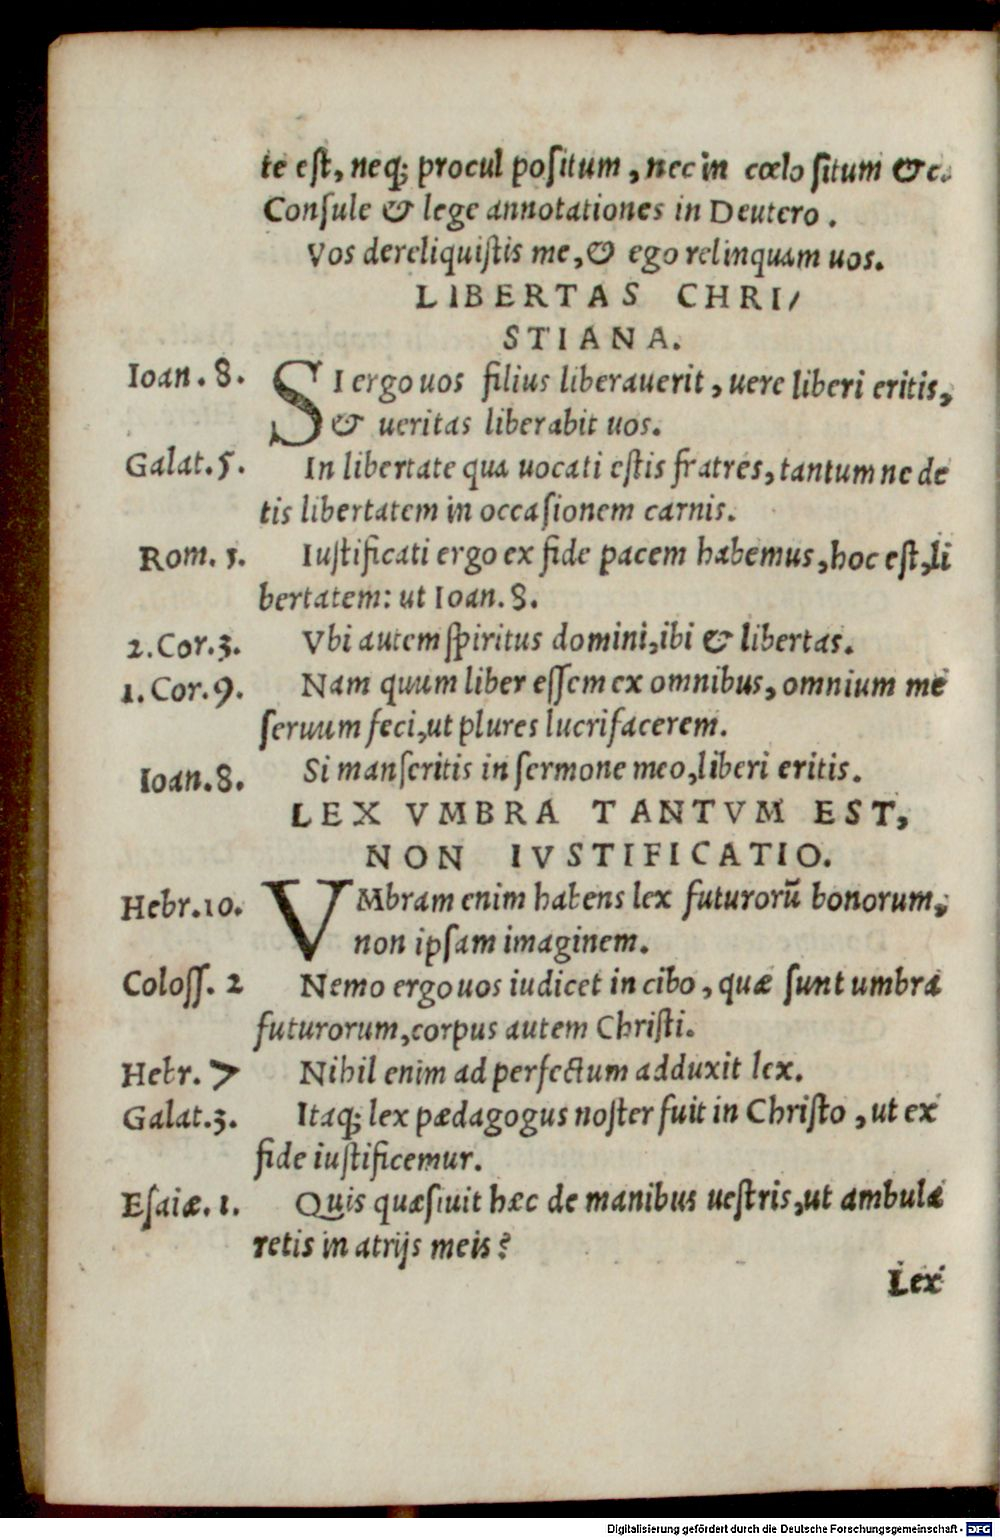 te est, neq; procul positum, nec in cœlo situm &c.
Consule & lege annotationes in Deutero.
Vos dereliquistis me, & ego relinquam uos.
LIBERTAS CHRI/
STIANA.
Ioan. 8. SI ergo uos filius liberauerit, uere liberi eritis,
& ueritas liberabit uos.
Galat. 5. In libertate qua uocati estis fratres, tantum ne de
tis libertatem in occasionem carnis.
Rom. 5. Iustificati ergo ex fide pacem habemus, hoc est, li
bertatem: ut Ioan. 8.
2. Cor. 3. Vbi autem spiritus domini, ibi & libertas.
1. Cor. 9. Nam quum liber essem ex omnibus, omnium me
seruum feci, ut plures lucrifacerem.
Ioan. 8. Si manseritis in sermone meo, liberi eritis.
LEX VMBRA TANTVM EST,
NON IVSTIFICATIO.
Hebr. 10. VMbram enim habens lex futurorũ bonorum,
non ipsam imaginem.
Coloss. 2 Nemo ergo uos iudicet in cibo, quæ sunt umbra
futurorum, corpus autem Christi.
Hebr. 7 Nihil enim ad perfectum adduxit lex.
Galat. 3. Itaq; lex pædagogus noster fuit in Christo, ut ex
fide iustificemur.
Esaiæ. 1. Quis quæsiuit hæc de manibus uestris, ut ambula
retis in atrijs meis?
Lex
Digitalisierung gefördert durch die Deutsche Forschungsgemeinschaft - DFG